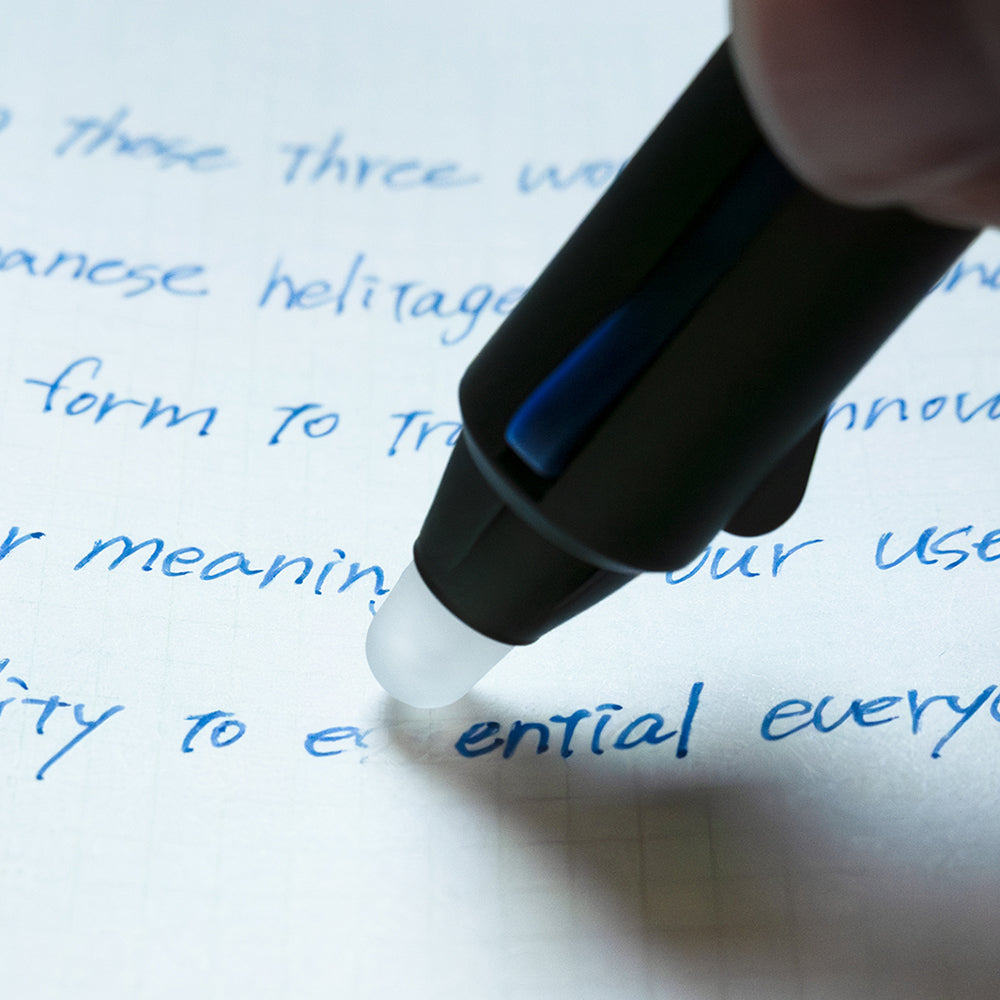 these three wo
anese helitage
form to tra nnova
r meaning our use
ity to es ential every